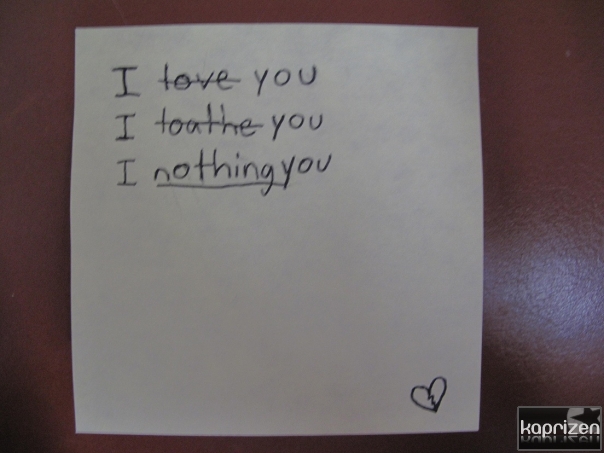 I love you
I loathe you
I nothing you
kaprizen